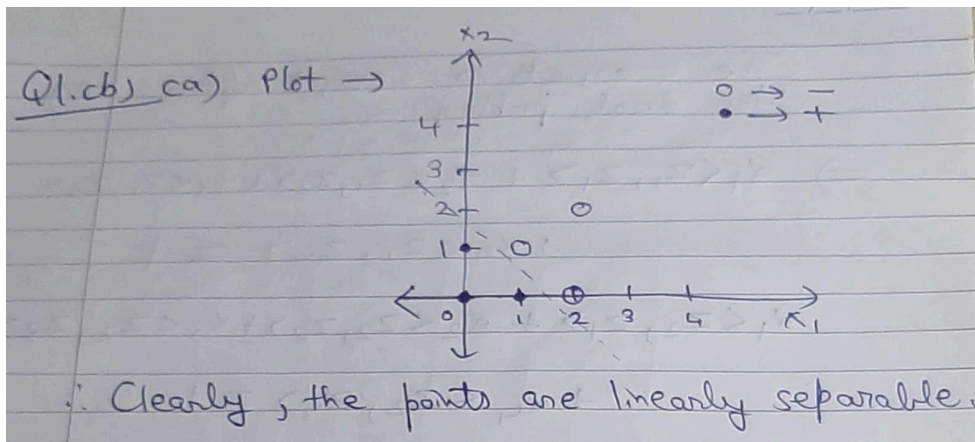 x2
Q1.cb) ca) Plot →
o → −
• → +
4
3
2
1
0 1 2 3 4 x1
∴ Clearly, the points are linearly separable.